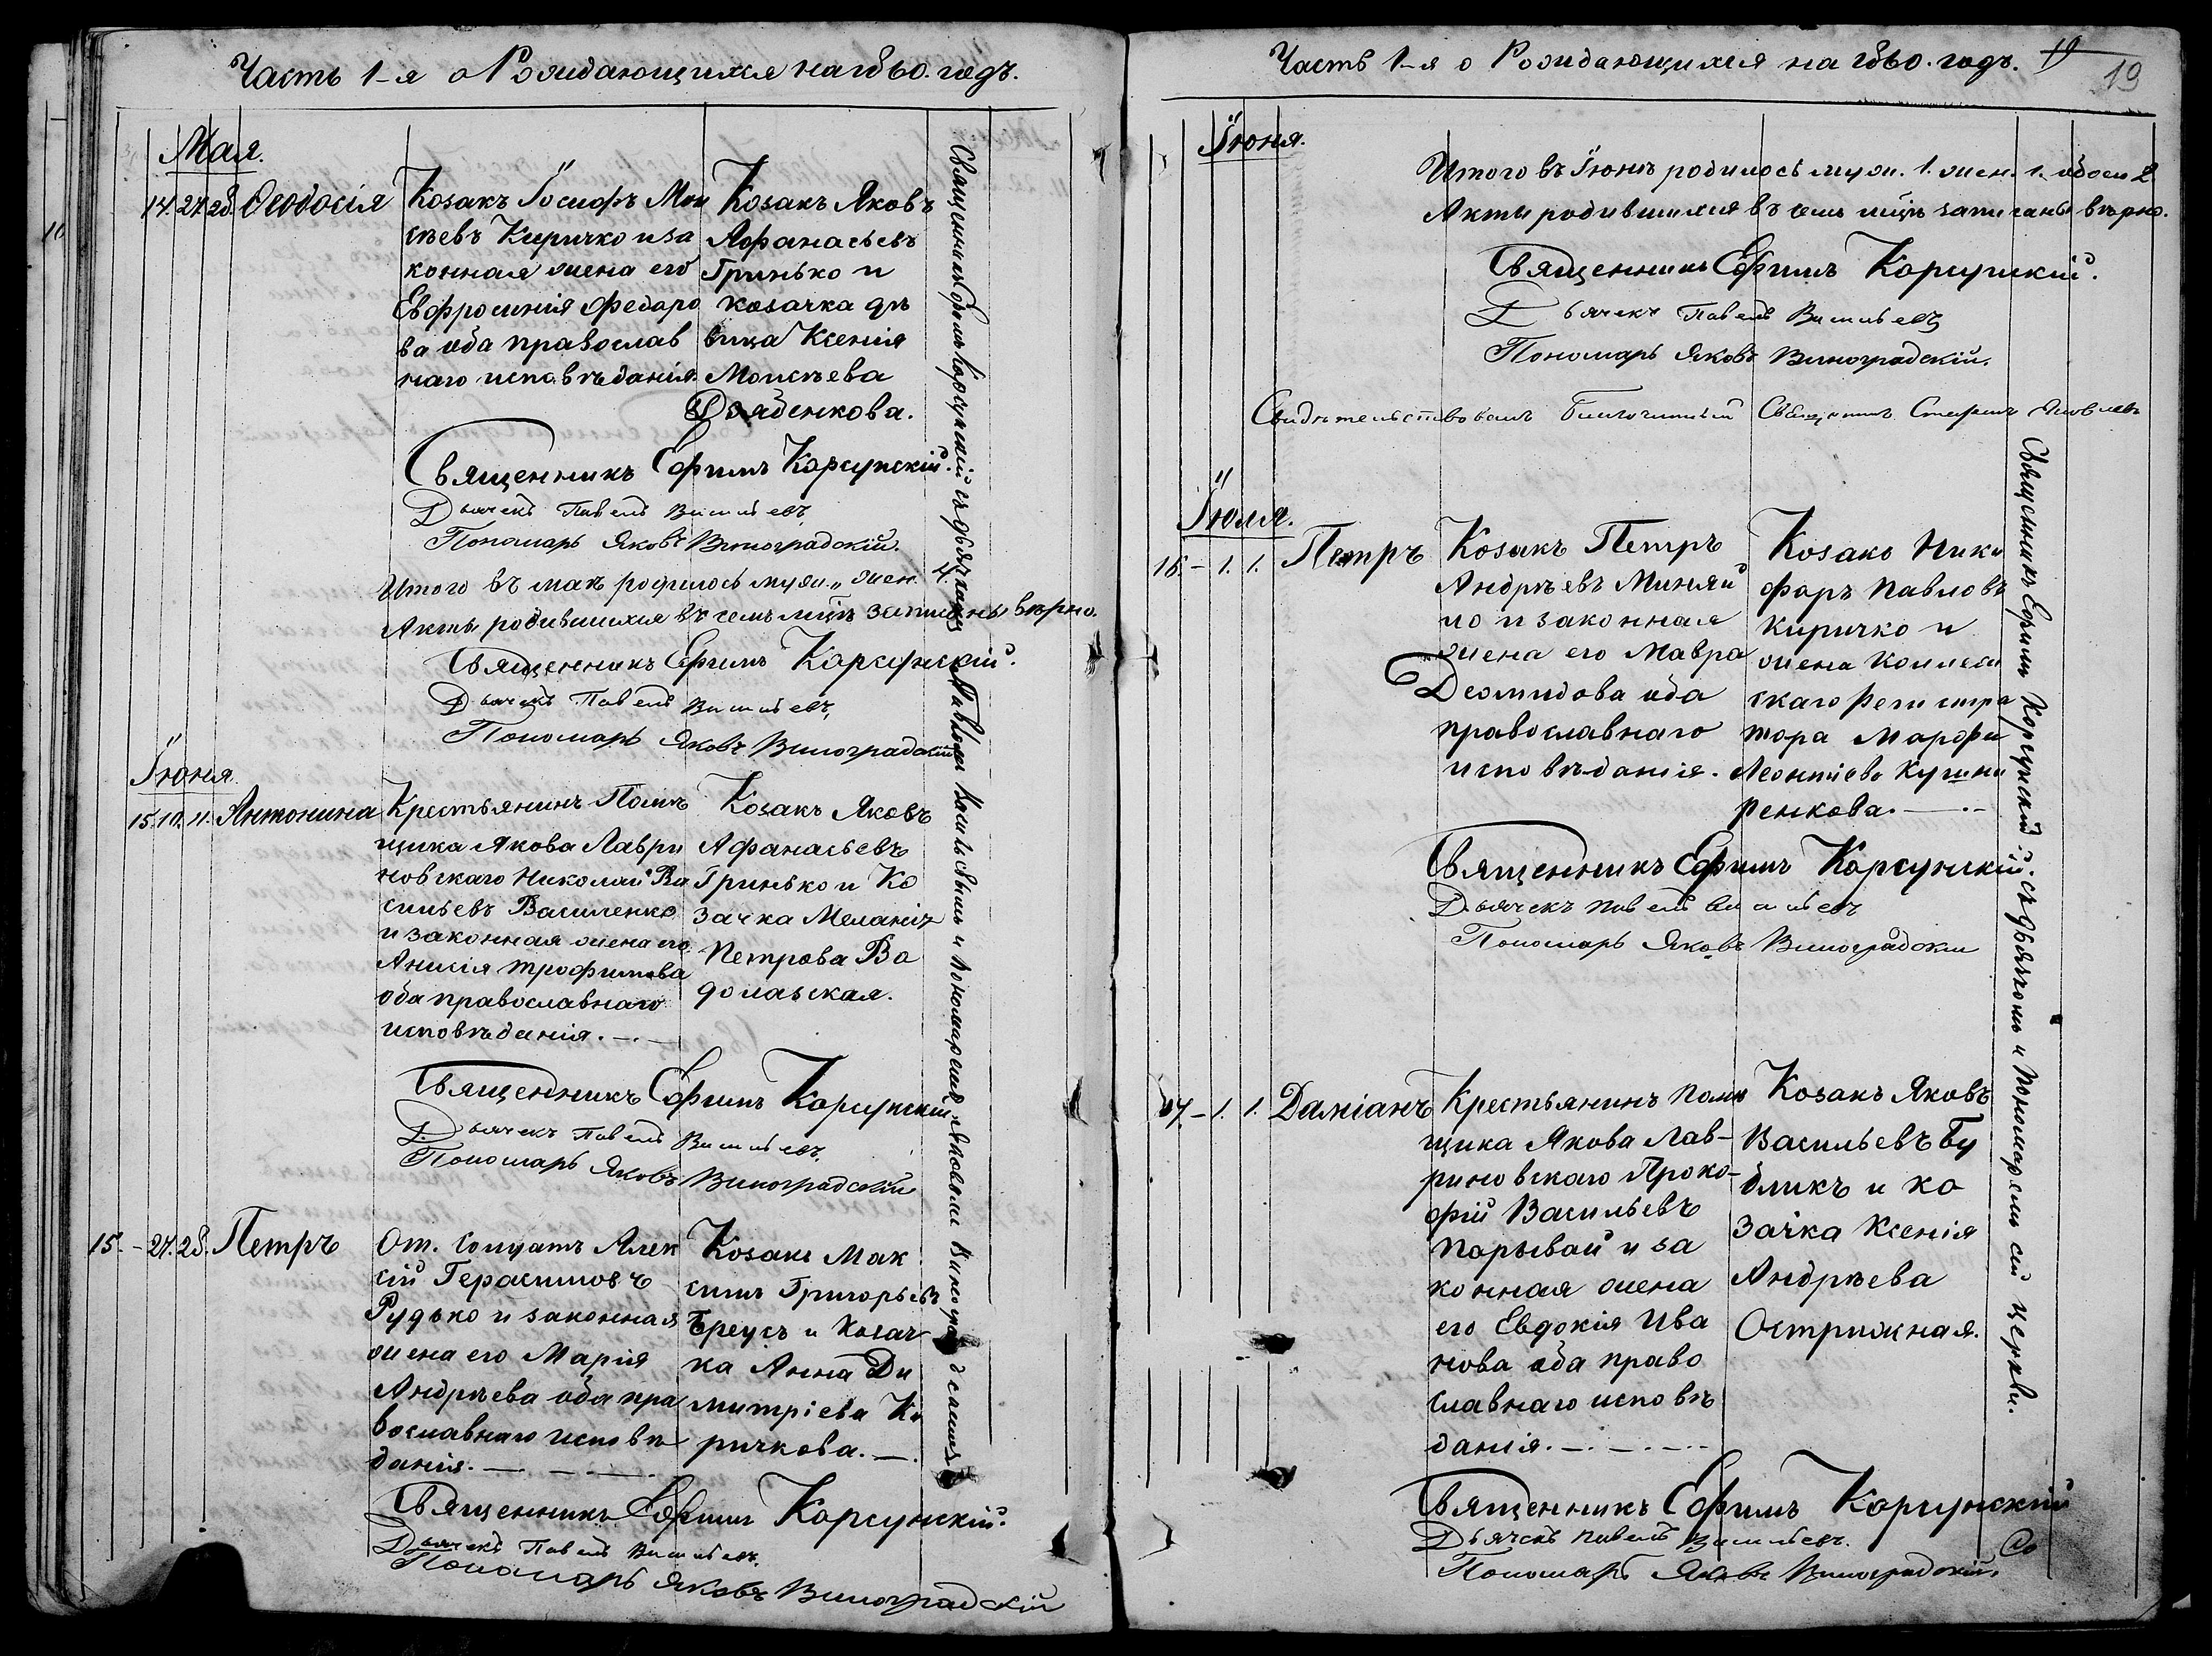 Часть 1-я о Рождающихся на 1860. годъ.
Мая.
14. 27. 28. Ѳеодосія
Козакъ Іосифъ Мои
сѣевъ Киричко и за
конная жена его
Евфросинія Федоро
ва оба православ
наго исповѣданія.
Козакъ Яковъ
Афанасьевъ
Гринько и
козачка дѣ
вица Ксенія
Моисѣева
Священникъ Ефимъ Корсунскій.
Дьячекъ Павелъ Васильевъ
Пономарь Яковъ Виноградскій.
Итого въ маѣ родилось муж. „ жен. 4.
Акты родившихся въ семъ мцѣ записаны вѣрно.
Священникъ Ефимъ Корсунскій.
Дьячекъ Павелъ Васильевъ
Пономарь Яковъ Виноградскій
Іюня
15. 10. 11. Антонина
Крестьянинъ Помѣ
щика Якова Лаври
новскаго Николай Ва
сильевъ Василенко
и законная жена его
Анисія Трофимова
оба православнаго
исповѣданія.
Козакъ Яковъ
Афанасьевъ
Гринько и Ко
зачка Меланія
Петрова
Священникъ Ефимъ Корсунскій
Дьячекъ Павелъ Васильевъ.
Пономарь Яковъ Виноградскій
15. - 27. 28. Петръ
От. Солдатъ Алек
сій Герасимовъ
Рудько и законная
жена его Марія
Андрѣева оба пра
вославнаго исповѣ
данія.
Козакъ Мак
симъ Григорьевъ
Бреусъ и Козач
ка Анна Ди
митріева Ки
ричкова.
Священникъ Ефимъ Корсунскій.
Дьячекъ Павелъ Васильевъ.
Пономарь Яковъ Виноградскій
Священникъ Ефимъ Корсунскій съ дьячкомъ Павломъ Васильевымъ и Пономаремъ Яковомъ Виноградскимъ
Часть 1-я о Рождающихся на 1860. годъ.
19
Іюня.
Итого въ Іюнѣ родилось муж. 1. жен. 1. обоего 2
Акты родившихся въ семъ мцѣ записаны вѣрно.
Священникъ Ефимъ Корсунскій.
Дьячекъ Павелъ Васильевъ
Пономарь Яковъ Виноградскій.
Свидѣтельствовалъ Благочинный Священникъ Стефанъ Яковлевъ
Іюля.
16. - 1. 1. Петръ
Козакъ Петръ
Андрѣевъ Миняй
ло и законная
жена его Мавра
Деомидова оба
православнаго
исповѣданія.
Козакъ Ники
форъ Павловъ
Киричко и
жена Коллеж
скаго Регистра
тора Марфа
Леонтіева Кушни
ренкова.
Священникъ Ефимъ Корсунскій.
Дьячекъ Павелъ Васильевъ
Пономарь Яковъ Виноградскій
17. - 1. 1. Даміанъ
Крестьянинъ Помѣ
щика Якова Лав-
риновскаго Проко-
фій Васильевъ
Порывай и за
конная жена
его Евдокія Ива
нова оба право
славнаго исповѣ
данія.
Козакъ Яковъ
Васильевъ Бу
бликъ и ко
зачка Ксенія
Андрѣева
Острижная.
Священникъ Ефимъ Корсунскій
Дьячекъ Павелъ Васильевъ.
Пономарь Яковъ Виноградскій.
Священникъ Ефимъ Корсунскій съ дьячкомъ и Пономаремъ сей церкви.